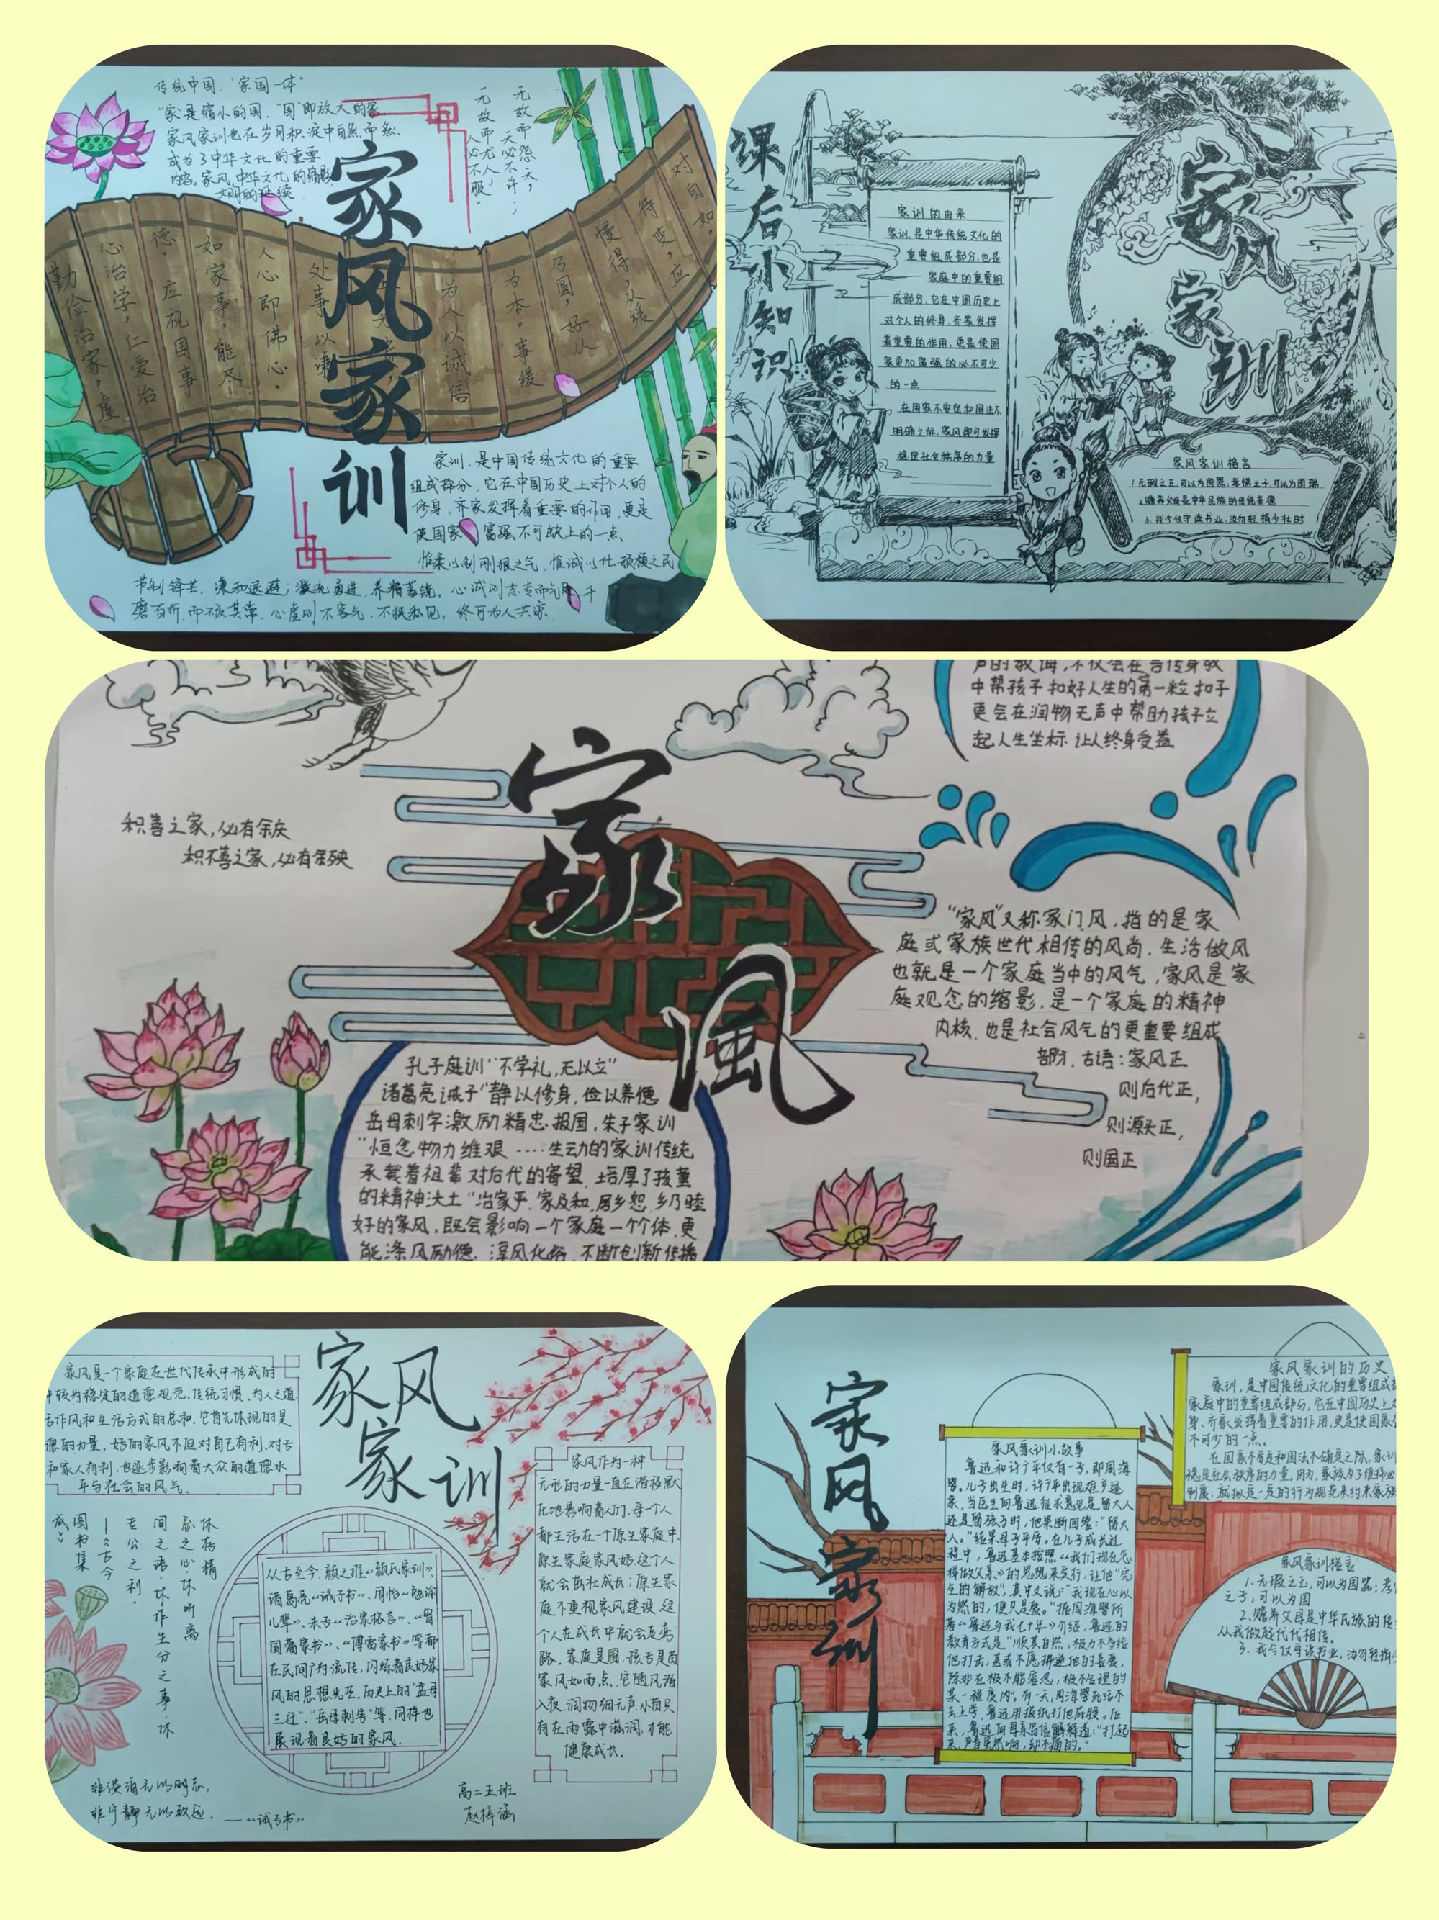 传统中国，“家国一体”
“家”是缩小的国，“国”即放大的家
家风家训也在岁月积淀中自然而然
成为了中华文化的重要
内容。家风中华文化的
文明的延续
无故而
无故而
天必怨不天，
必尤不人，
不许；
不服
家风家训
对自如。
待变，应
慢得众缓
乃圆，好从
为本。事缓
为人以诚信
处事以谦
人心即佛心。
如家事，能尽
德。应视国事
心治学，仁爱治
勤俭治家，虚
家训，是中国传统文化的重要
组成部分，它在中国历史上对个人的
修身、齐家发挥着重要的作用，更是
使国家富强不可缺上的一点、
惟柔以制刚狠之气，惟诚以化顽梗之民
节制锋芒，谦和退避；激流勇进，养精蓄锐。心诚则志专而气
磨百折，而不改其常，心虚则不客气，不挟私见，终可为人共家
课后小知识
家训的由来
家训，是中华传统文化的
重要组成部分，也是
家庭中的重要组
成部分，它在中国历史上
对个人的修身、齐家发挥
着重要的作用，更是使国
家更加富强的必不可少
的一点
在国家不安定和国法不
明确之际，家风即可发挥
稳定社会秩序的力量
家风家训
家风家训格言
1.无瑕之玉，可以为国器，孝悌之子，可以为国瑞
2.赡养父母是中华民族的传统美德
3.我今仅守读书业，汝勿轻捐少壮时
声的教诲，不仅会在言传身教
中帮孩子扣好人生的第一粒扣子
更会在润物无声中帮助孩子立
起人生坐标 让人终身受益
积善之家，必有余庆
积不善之家，必有余殃
家風
“家风”又称家门风，指的是家
庭或家族世代相传的风尚、生活做风
也就是一个家庭当中的风气，家风是家
庭观念的缩影，是一个家庭的精神
内核，也是社会风气的更重要组成
部分，古语：家风正
则后代正，
则源头正，
则国正
孔子庭训“不学礼，无以立”
诸葛亮诫子“静以修身，俭以养德
岳母刺字激励精忠报国，朱子家训
“恒念物力维艰……生动的家训传统
承载着祖辈对后代的寄望，培厚了孩童
的精神沃土“治家严，家及和，居乡恕，乡乃睦
好的家风，既会影响一个家庭一个个体，更
能涤风励德，淳风化俗，不断创新传播
家风家训
家风是一个家庭在世代传承中形成的
中较为稳定的道德规范、传统习惯、为人之道
活作风和生活方式的总和，它首先体现的是
德的力量，好的家风不但对自己有利，对云
和家人有利，也逐步影响着大众的道德水
平与社会的风气
休扬精
忽之心，休听离
间之语，休作生分之事，休
专公之利。
——《古今
图书集
成》
从古至今，颜之推《颜氏家训》、
诸葛亮《诫子书》、周怡《勉谕
儿辈》、朱子《治家格言》、《曾
国藩家书》、《傅雷家书》等都
在民间广为流传，闪烁着良好家
风的思想光芒，历史上的“孟母
三迁”、“岳母刺字”等，同样也
展现着良好的家风
家风作为一种
无形的力量一直在潜移默
化地影响着人们，每一个人
都生活在一个原生家庭中，
原生家庭家风好这个人
就会茁壮成长；原生家
庭不重视家风建设，这
个人在成长中就会走弯
路，家庭是圃，孩子是苗
家风如雨点，它随风潜
入夜，润物细无声，小苗只
有在雨露中滋润，才能
健康成长。
非淡泊无以明志，
非宁静无以致远。
——《诫子书》
高二五班
赵梓涵
家风家训
家风家训小故事
鲁迅和许广平仅有一子，即周海
婴。儿子出生时，许广平出现难产迹
象，当医生向鲁迅征求意见是留大人
还是留孩子时，他果断回答：“留大
人。”结果母子平安。在儿子成长过
程中，鲁迅基本按照《我们现在怎
样做父亲》的思想来实行，让他“完
全的解放”，其中又说：“我现在心以
为然的，便只是爱。”据周海婴所
著《鲁迅与我七十年》介绍，鲁迅的
教育方式是“顺其自然，极力不多给
他打击，甚或不愿拂逆他的喜爱，
除非在极不能容忍，极不合理的
某一程度内”。有一天，周海婴死活不
去上学，鲁迅用报纸打他屁股，后
来，鲁迅向母亲写信解释道：“打起
来，声音虽然响，却不痛的。”
家风家训的历史
家训，是中国传统文化的重要组成部
家庭中的重要组成部分，它在中国历史上
身、齐家发挥着重要的作用，更是使国家
不可少的一点。
在国家不安定和国法不确定之际，家训
稳定社会秩序的力量，因为，家族为了维持必
制度，就拟定一定的行为规范来约束家族
家风家训格言
1.无瑕之玉，可以为国器，孝
之子，可以为国
2.赡养父母是中华民族的传
从我做起代代相传。
3.我今仅守读书业，汝勿轻捐少